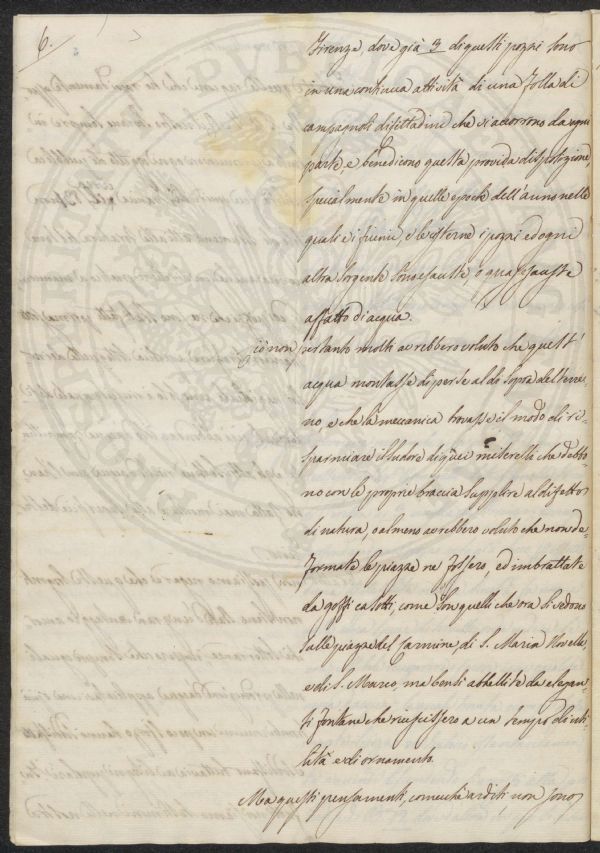 6.
Firenze, dove già 3 di questi pozzi sono
in una continua attività di una folla di
campagnoli di cittadini che vi accorrono da ogni
parte, e benedicono questa provida disposizione,
specialmente in quelle epoche dell'anno nelle
quali e i fiumi, e le cisterne i pozzi ed ogni
altra sorgente sono esauste o quasi esauste
affatto di acqua.
ciò non pertanto molti avrebbero voluto che quest'
acqua montasse di per se al di sopra del terre-
no, e che la meccanica trovasse il modo di ri-
sparmiare il sudore di quei miserelli che debbo-
no con le proprie braccia supplire al difetto
di natura, o almeno avrebbero voluto che non de-
formate le piazze ne fossero, ed imbrattate
da goffi casotti, come son quelli che ora si vedono
sulle piazze del Carmine, di S. Maria Novella,
e di S. Marco, ma bensì abbellite da elegan-
ti fontane che riuscissero a un tempo di uti-
lità e di ornamento.
Ma questi pensamenti, comecchè arditi non sono